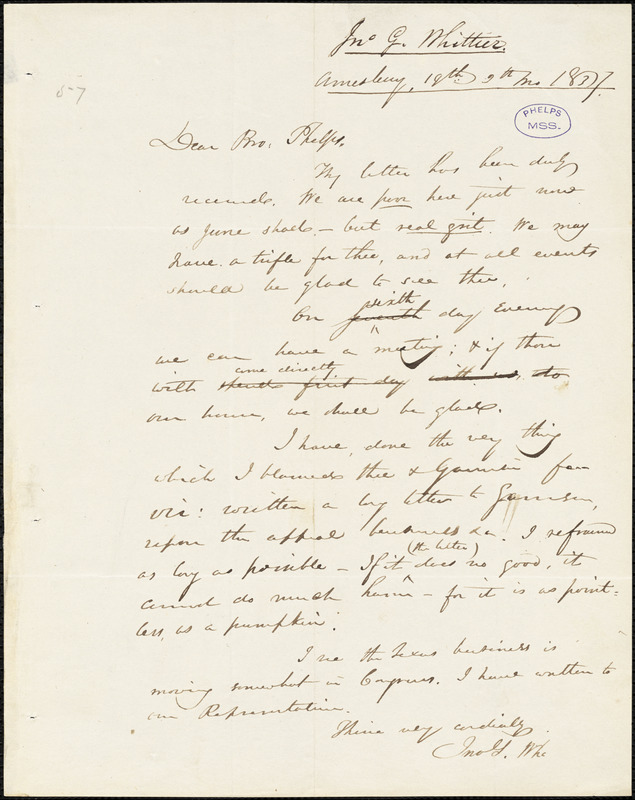 Jno G. Whittier.
Amesbury, 19th 9th mo 1837.
57
PHELPS
MSS.
Dear Bro. Phelps,
Thy letter has been duly
received. We are poor here just now
as June shads – but real grit. We may
have a trifle for thee, and at all events
should be glad to see thee.
sixth
On seventh day Evening
we can have a meeting; & if thou
come directly
wilt spend first day with us, to
our house, we shall be glad.
I have done the very thing
which I blamed thee & Garrison for
viz: written a long letter to Garrison,
upon the appeal business &c. I refrained
(the letter)
as long as possible – If it does no good, it
cannot do much harm – for it is as point-
less, as a pumpkin.
I see the Texas business is
moving somewhat in Congress. I have written to
our Representative.
Thine very cordially
Jno G. Whr